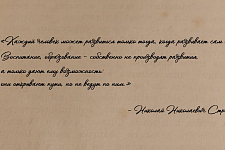 «Каждый человек может развиться только тогда, когда развивает сам
Воспитание, образование - собственно не производят развития,
а только дают ему возможность:
они открывают пути, но не ведут по ним.»
- Николай Николаевич Стр